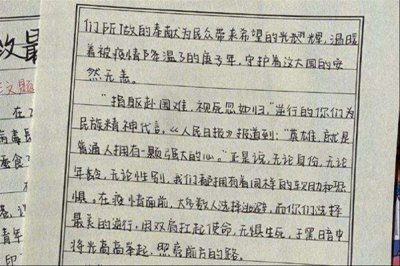 们所做的奉献为民众带来希望的光辉，温暖
着被疫情降温了的庚子年，守护着这大国的安
然无恙。
“捐躯赴国难，视死忽如归。”逆行的你们为
民族精神代言，《人民日报》报道到：“英雄，就是
普通人拥有一颗强大的心。”正是说，无论身份，无论
年龄，无论性别，我们都拥有着同样的
惧。在疫情面前，大多数人选择逃避，而你们选择
最美的逆行，用双肩扛起使命，无惧生死，于黑暗中
将光高高举起，照亮前方的路。
最
在
病毒
蚕食了
青年